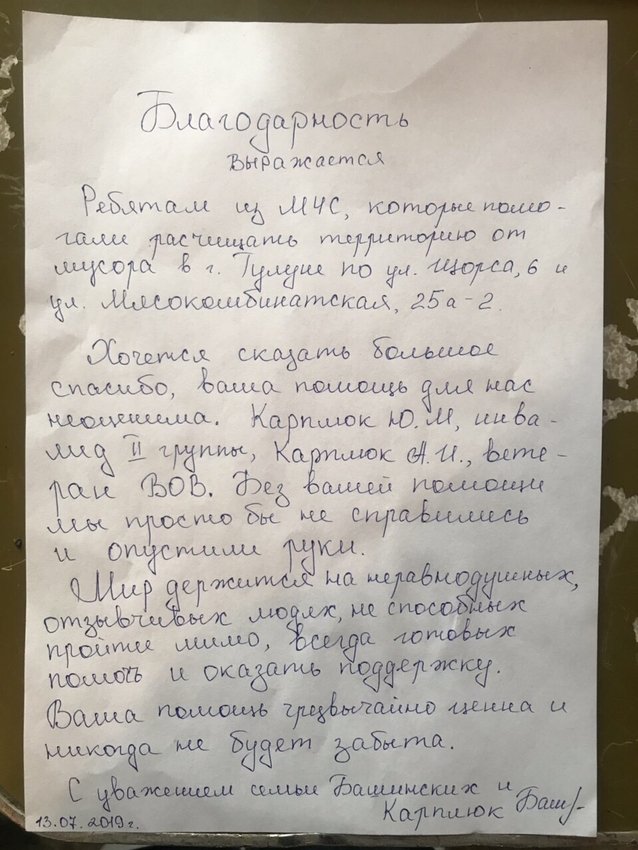 Благодарность
выражается
Ребятам из МЧС, которые помо-
гали расчищать территорию от
мусора в г. Тулуне по ул. Щорса, 6 и
ул. Мясокомбинатская, 25а-2.
Хочется сказать большое
спасибо, ваша помощь для нас
неоценима. Карплюк Ю.М, инва-
лид II группы, Карплюк А.И., вете-
ран ВОВ. Без вашей помощи
мы просто бы не справились
и опустили руки.
Мир держится на неравнодушных,
отзывчивых людях, не способных
пройти мимо, всегда готовых
помочь и оказать поддержку.
Ваша помощь чрезвычайно ценна и
никогда не будет забыта.
С уважением семьи Башинских и
Карплюк Баш
13.07.2019г.